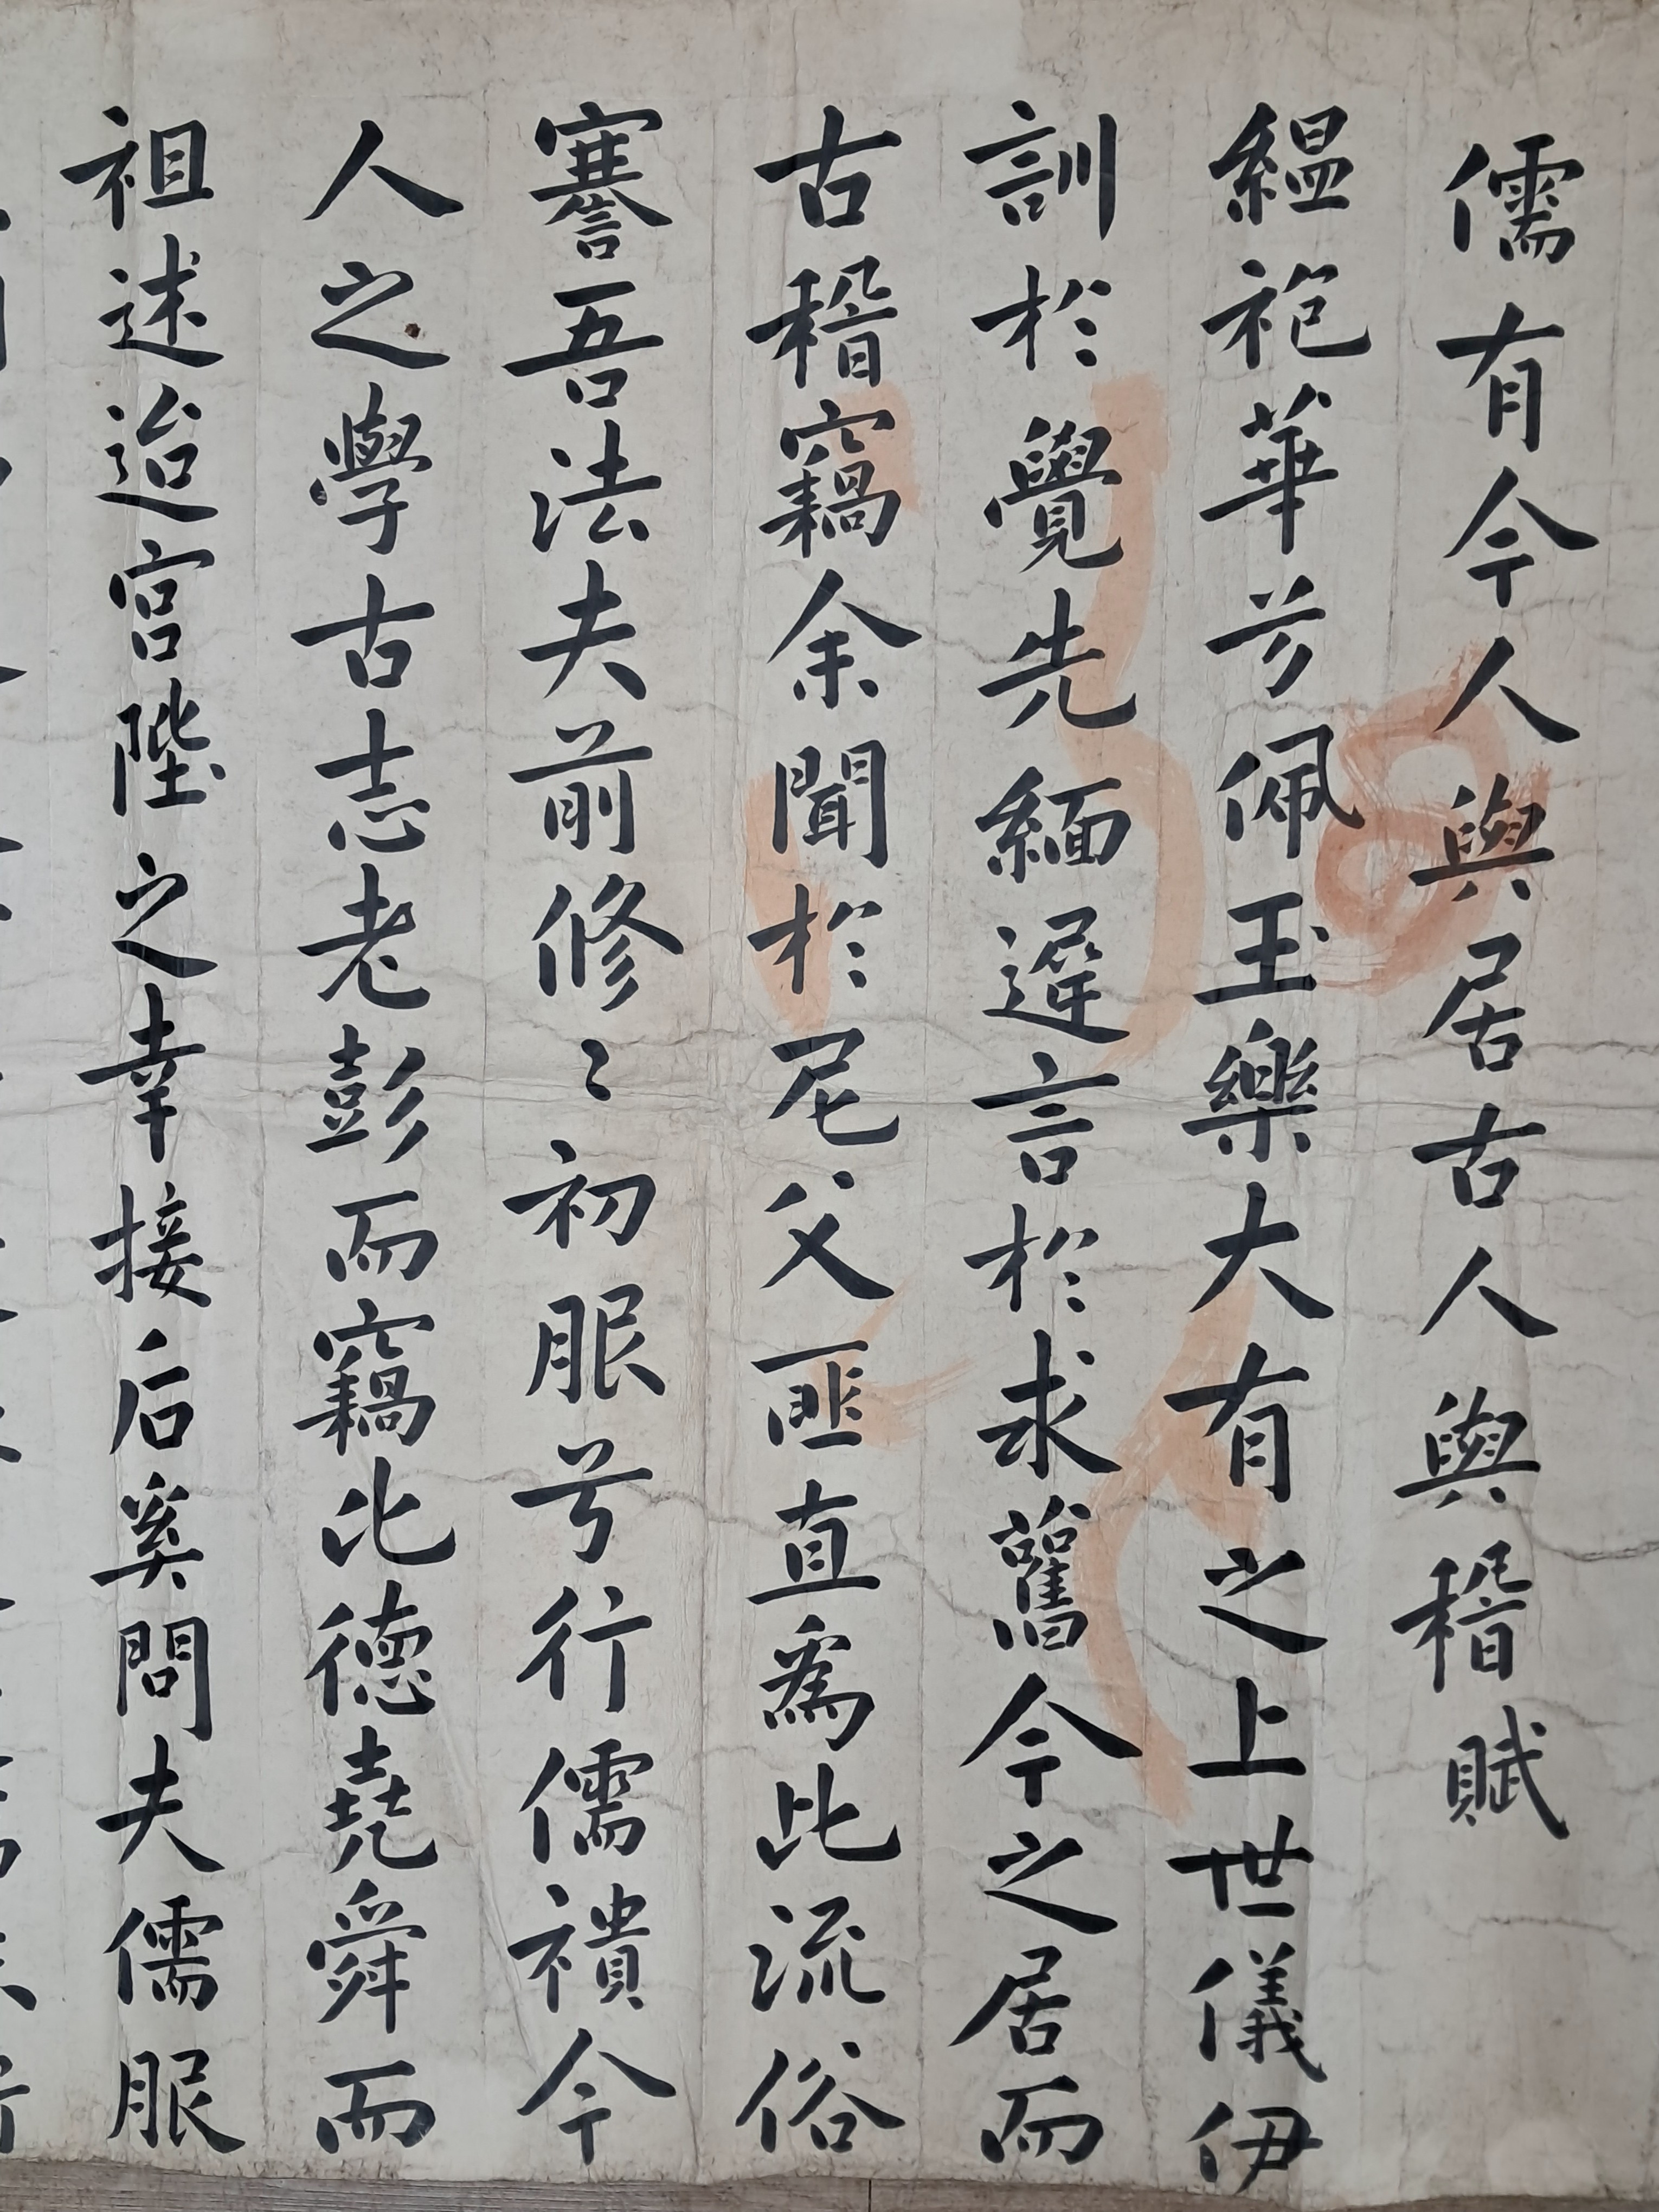 儒有今人與居古人與稽賦
緼袍華兮佩玉樂大有之上世儀伊
訓於覺先緬遲言於求舊今之居而
古稽竊余聞於尼父匪直爲此流俗
謇吾法夫前修〻初服兮行儒襀今
人之學古志老彭而竊比德堯舜而
祖述迨宮陛之幸接后奚問夫儒服